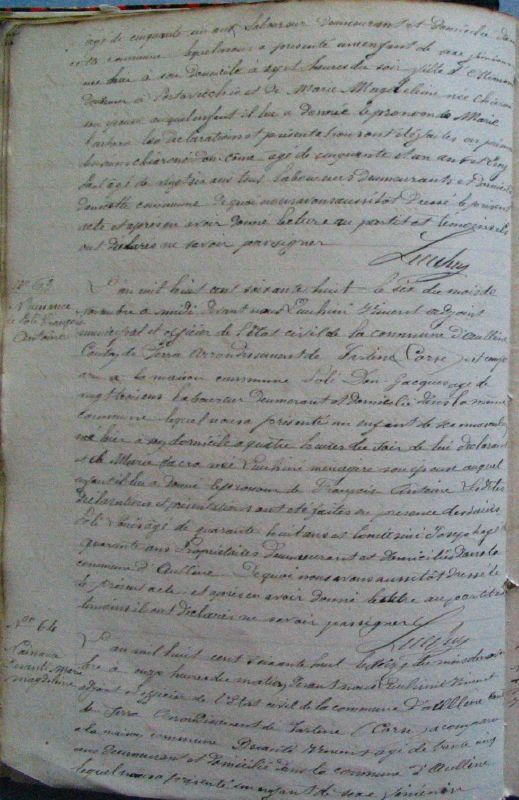 agé de cinquante un ans Laboureur demeurant et domicilié dans
cette commune lequel nous a presenté un enfant de sexe féminin
née hier à son domicile à sept heures du soir
à Portovecchio et de Marie Magdeleine née
son épouse auquel enfant il lui a donné le prenom de Marie
les declarations et présentation ont été faites en présence
agé de cinquante et un ans et
agé de vingt six ans tous laboureurs demeurants et domiciliés
dans cette commune De quoi nous avons aussitôt dressé le présent
acte et après en avoir donné lecture au partet et témoins ils
ont declarés ne savoir pas signer
No 63
Naissance
de Poli François
Antoine
L'an mil huit cent soixante huit le six du mois de
novembre à midi devant nous Lucchini Vincent adjoint
municipal et officier de l'Etat civil de la commune d'aullène
Canton de Serra arrondissement de Sartène (Corse) est comp
aru à la maison commune Poli Don Jacques agé de
vingt trois ans Laboureur demeurant et domicilié dans la même
commune lequel nous a présenté un enfant de sexe masculin
né hier à son domicile à quatre heures du soir de lui déclarant
et de Marie née Lucchini menagère son épouse auquel
enfant il lui a donné le prenom de François Antoine Lesdites
declarations et présentations ont été faites en présence des sieurs
Poli Louis agé de quarante huit ans et Joseph agé
quarante ans Propriétaires demeurant et domiciliés dans la
commune d'Aullène De quoi nous avons aussitôt dressé le
le présent acte et après en avoir donné lecture au partet et
temoins ils ont déclarés ne savoir pas signer
No 64
Naissance
Marie
Magdeleine
L'an mil huit cent soixante huit le du mois de
à onze heures du matin devant nous Lucchini Vincent
adjoint et officier de l'Etat civil de la commune d'Aullène
de Serra Arrondissement de Sartène (Corse) a comparu
à la maison commune agé de trente
ans demeurant et domicilié dans la commune d'Aullène
lequel nous a présenté un enfant de sexe féminin